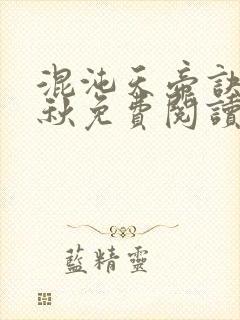 混沌天帝訣
秋免費閱讀
藍精靈